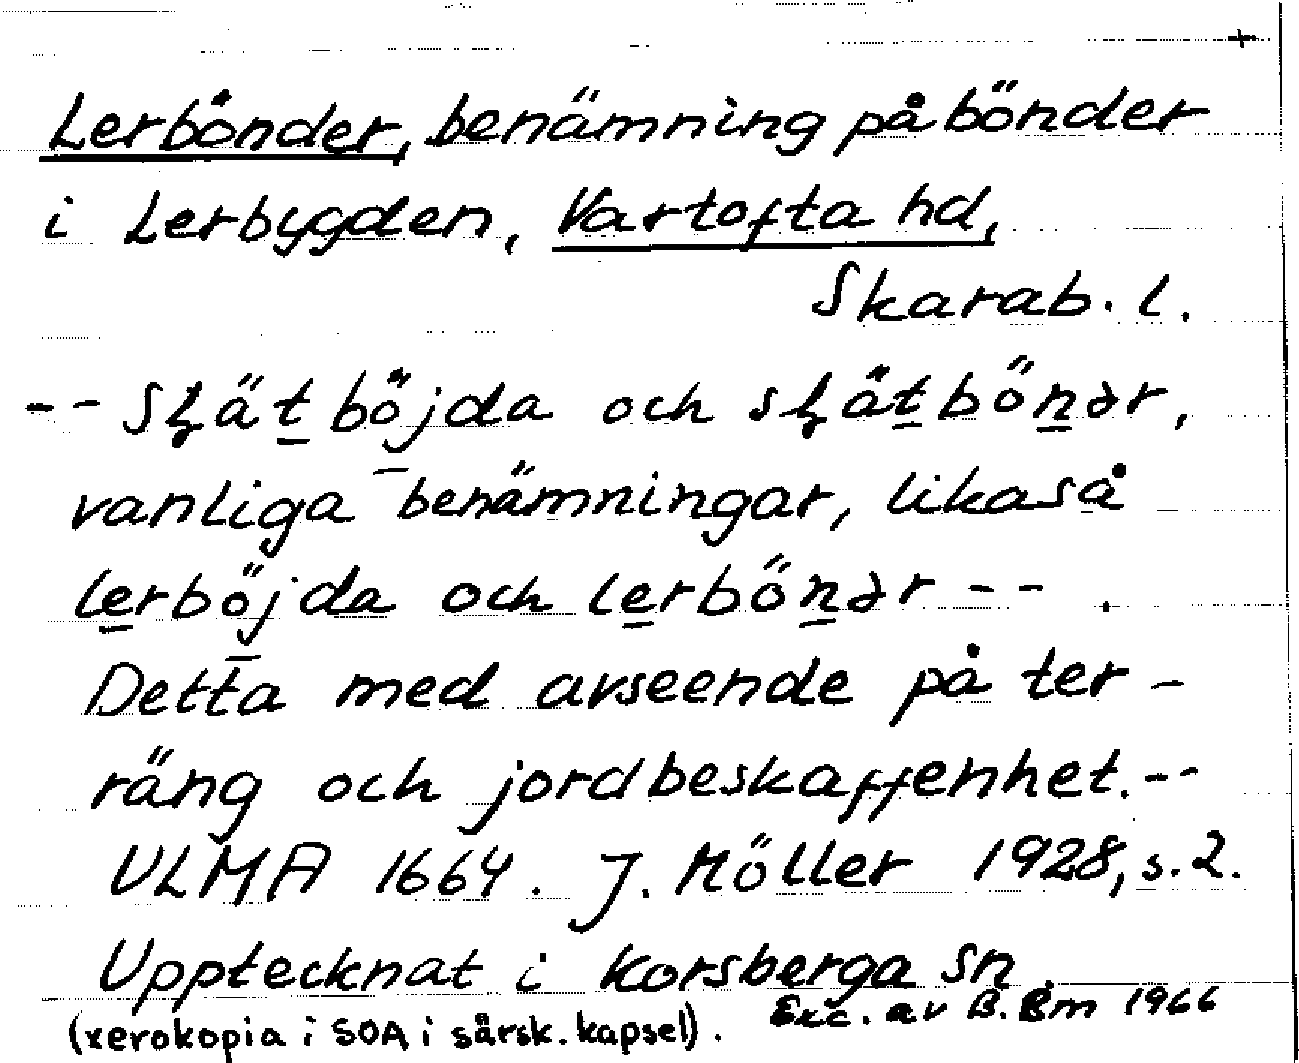 Lerbönder, benämning på bönder
i Lerbygden, Vartofta hd,
Skarab. l.
-- Slät böjda och slätbönər,
vanliga benämningar, likaså
lerböjda och lerbönər -- .
Detta med avseende på ter-
räng och jordbeskaffenhet. --
ULMA 1664. J. Möller 1928, s. 2.
Upptecknat i Korsberga sn.
(xerokopia i SOA i särsk. kapsel). Exc. av B. Em 1966